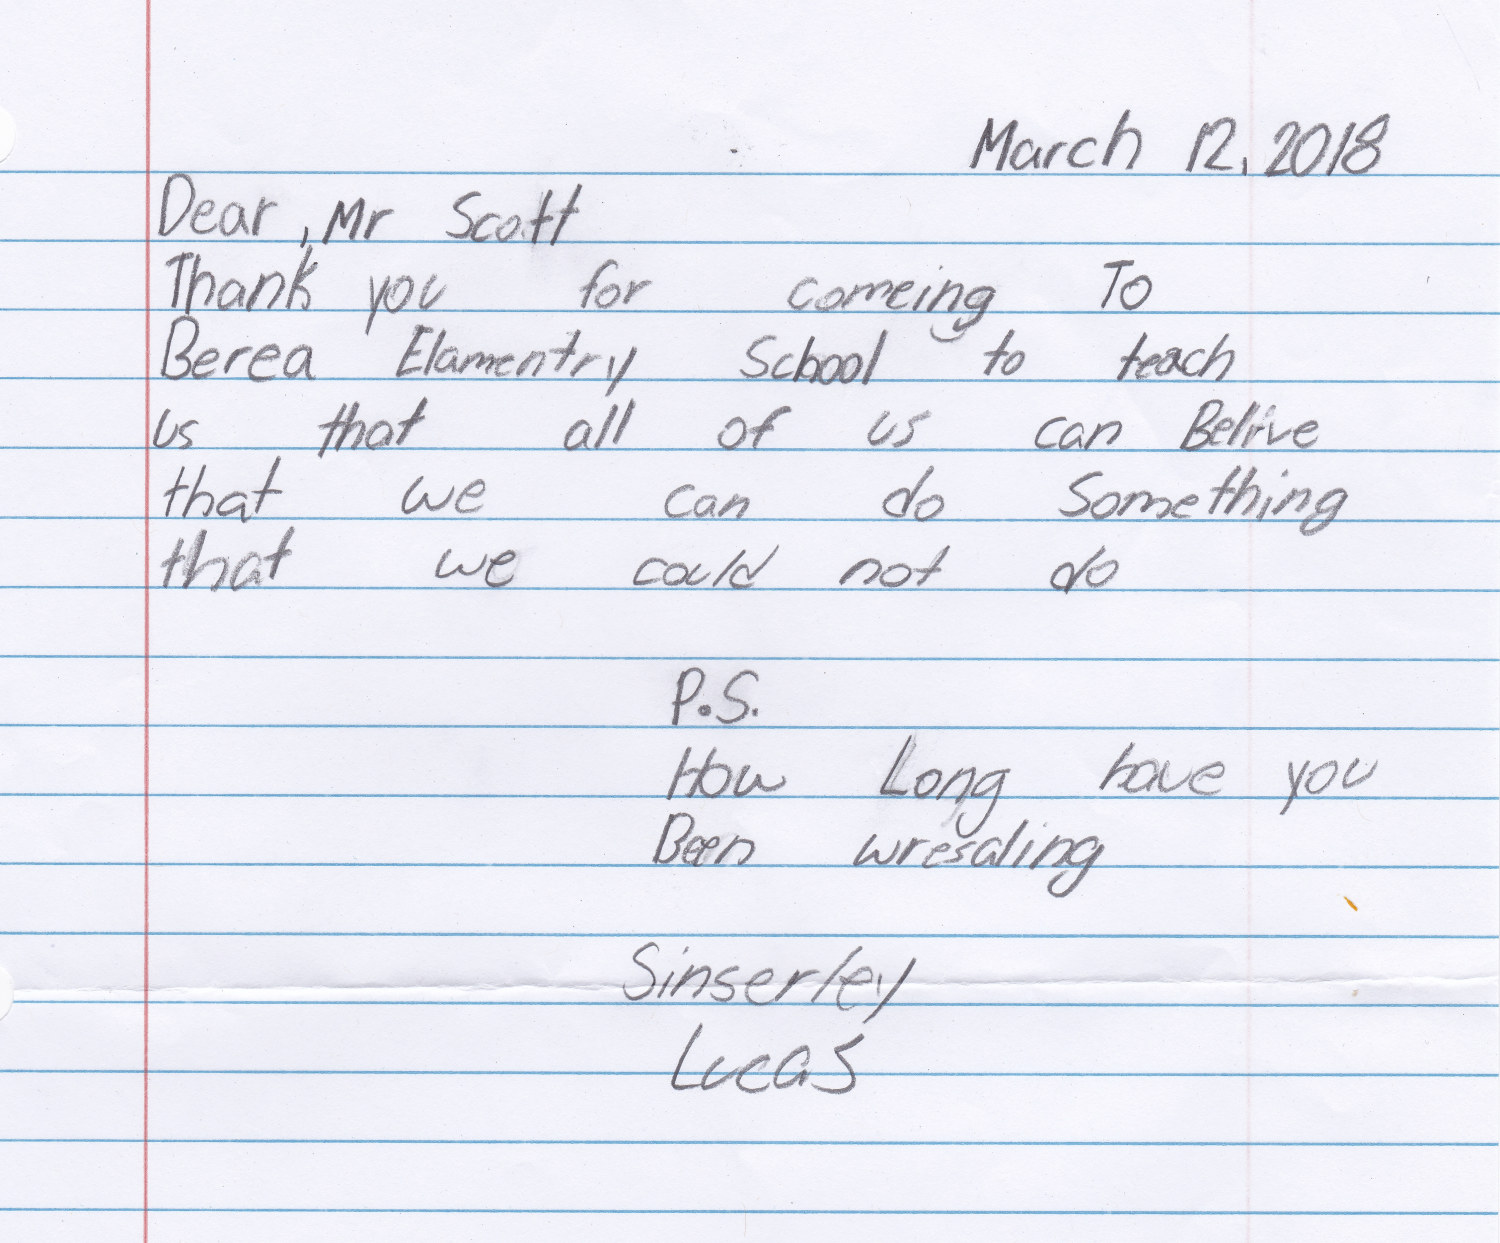 March 12, 2018
Dear, Mr Scott
Thank you for comeing To
Berea Elamentry School to teach
us that all of us can Belive
that we can do Something
that we could not do
P.S.
How Long have you
Been wresaling
Sinserley
Lucas